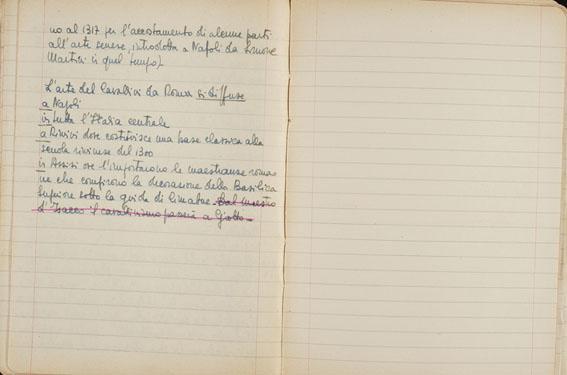 no al 1317 per l'accostamento di alcune parti
all'arte senese, introdotta a Napoli da Simone
Martini in quel tempo)
L'arte del Cavallini da Roma si diffuse
a Napoli
in tutta l'Italia centrale
a Rimini dove costituisce una base classica alla
scuola riminese del 1300
in Assisi ove l'importarono le maestranze roma
ne che compirono la decorazione della Basilica
Superiore sotto la guida di Cimabue. Dal maestro
d'Isacco il cavallinismo passerà a Giotto.